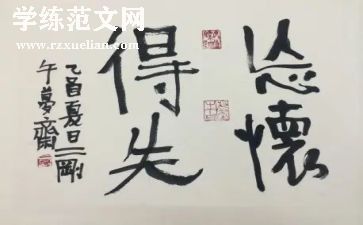 学练范文网
www.rzxuelian.com
忘懷
得失
乙酉夏日二剛
午夢齋